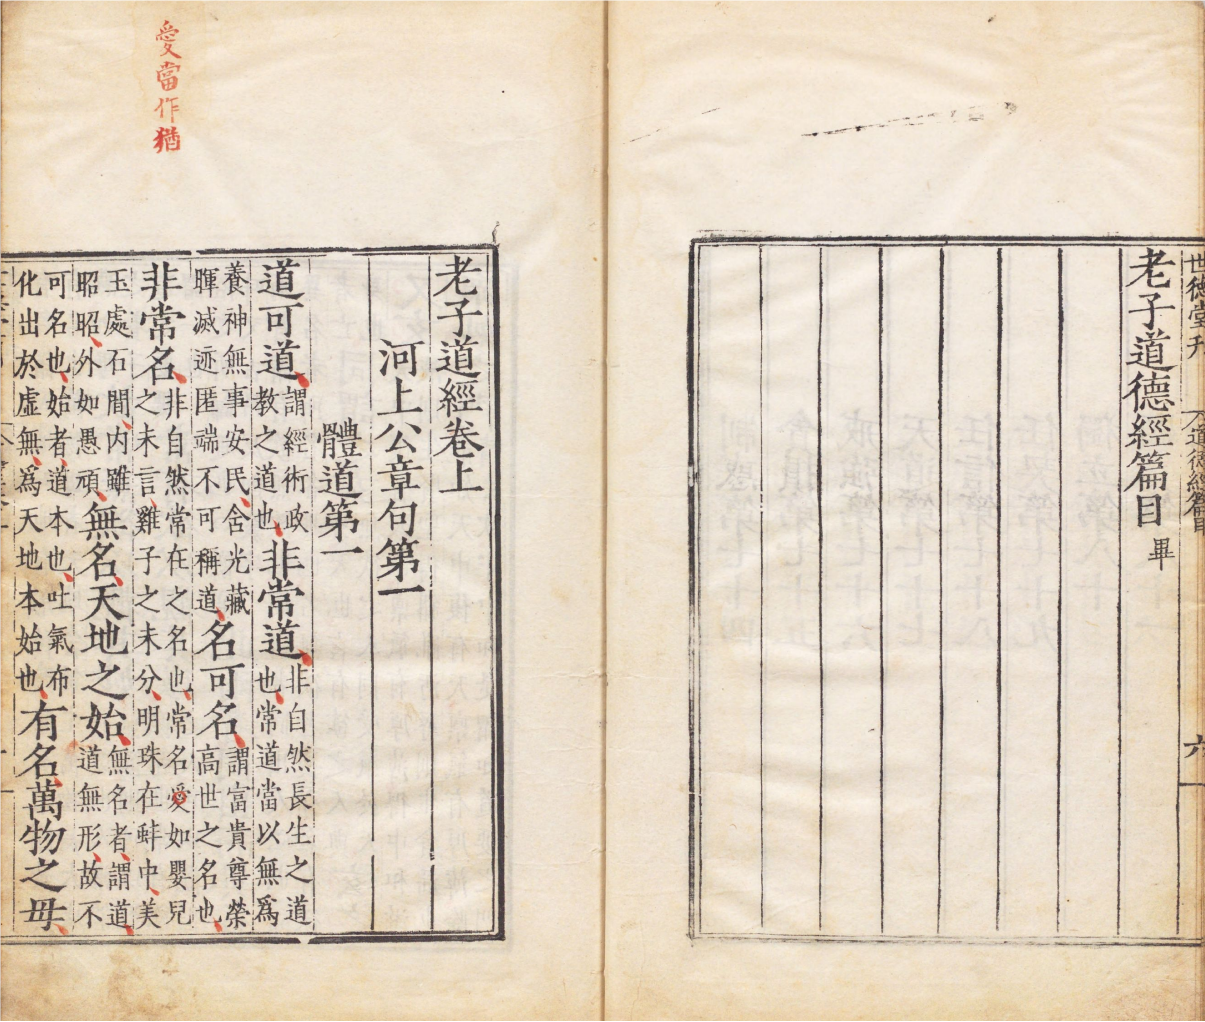 世德堂刊
道德經篇目
六
老子道德經篇目 畢
愛當作猶
老子道經卷上
河上公章句第一
體道第一
道可道謂經術政教之道也非常道非自然長生之道也常道當以無爲
養神無事安民含光藏暉滅迹匿端不可稱道名可名謂富貴尊榮高世之名也
非常名非自然常在之名也常名愛如嬰兒之未言雞子之未分明珠在蚌中美
玉處石間內雖昭昭外如愚頑無名天地之始無名者謂道道無形故不
可名也始者道本也吐氣布化出於虛無爲天地本始也有名萬物之母